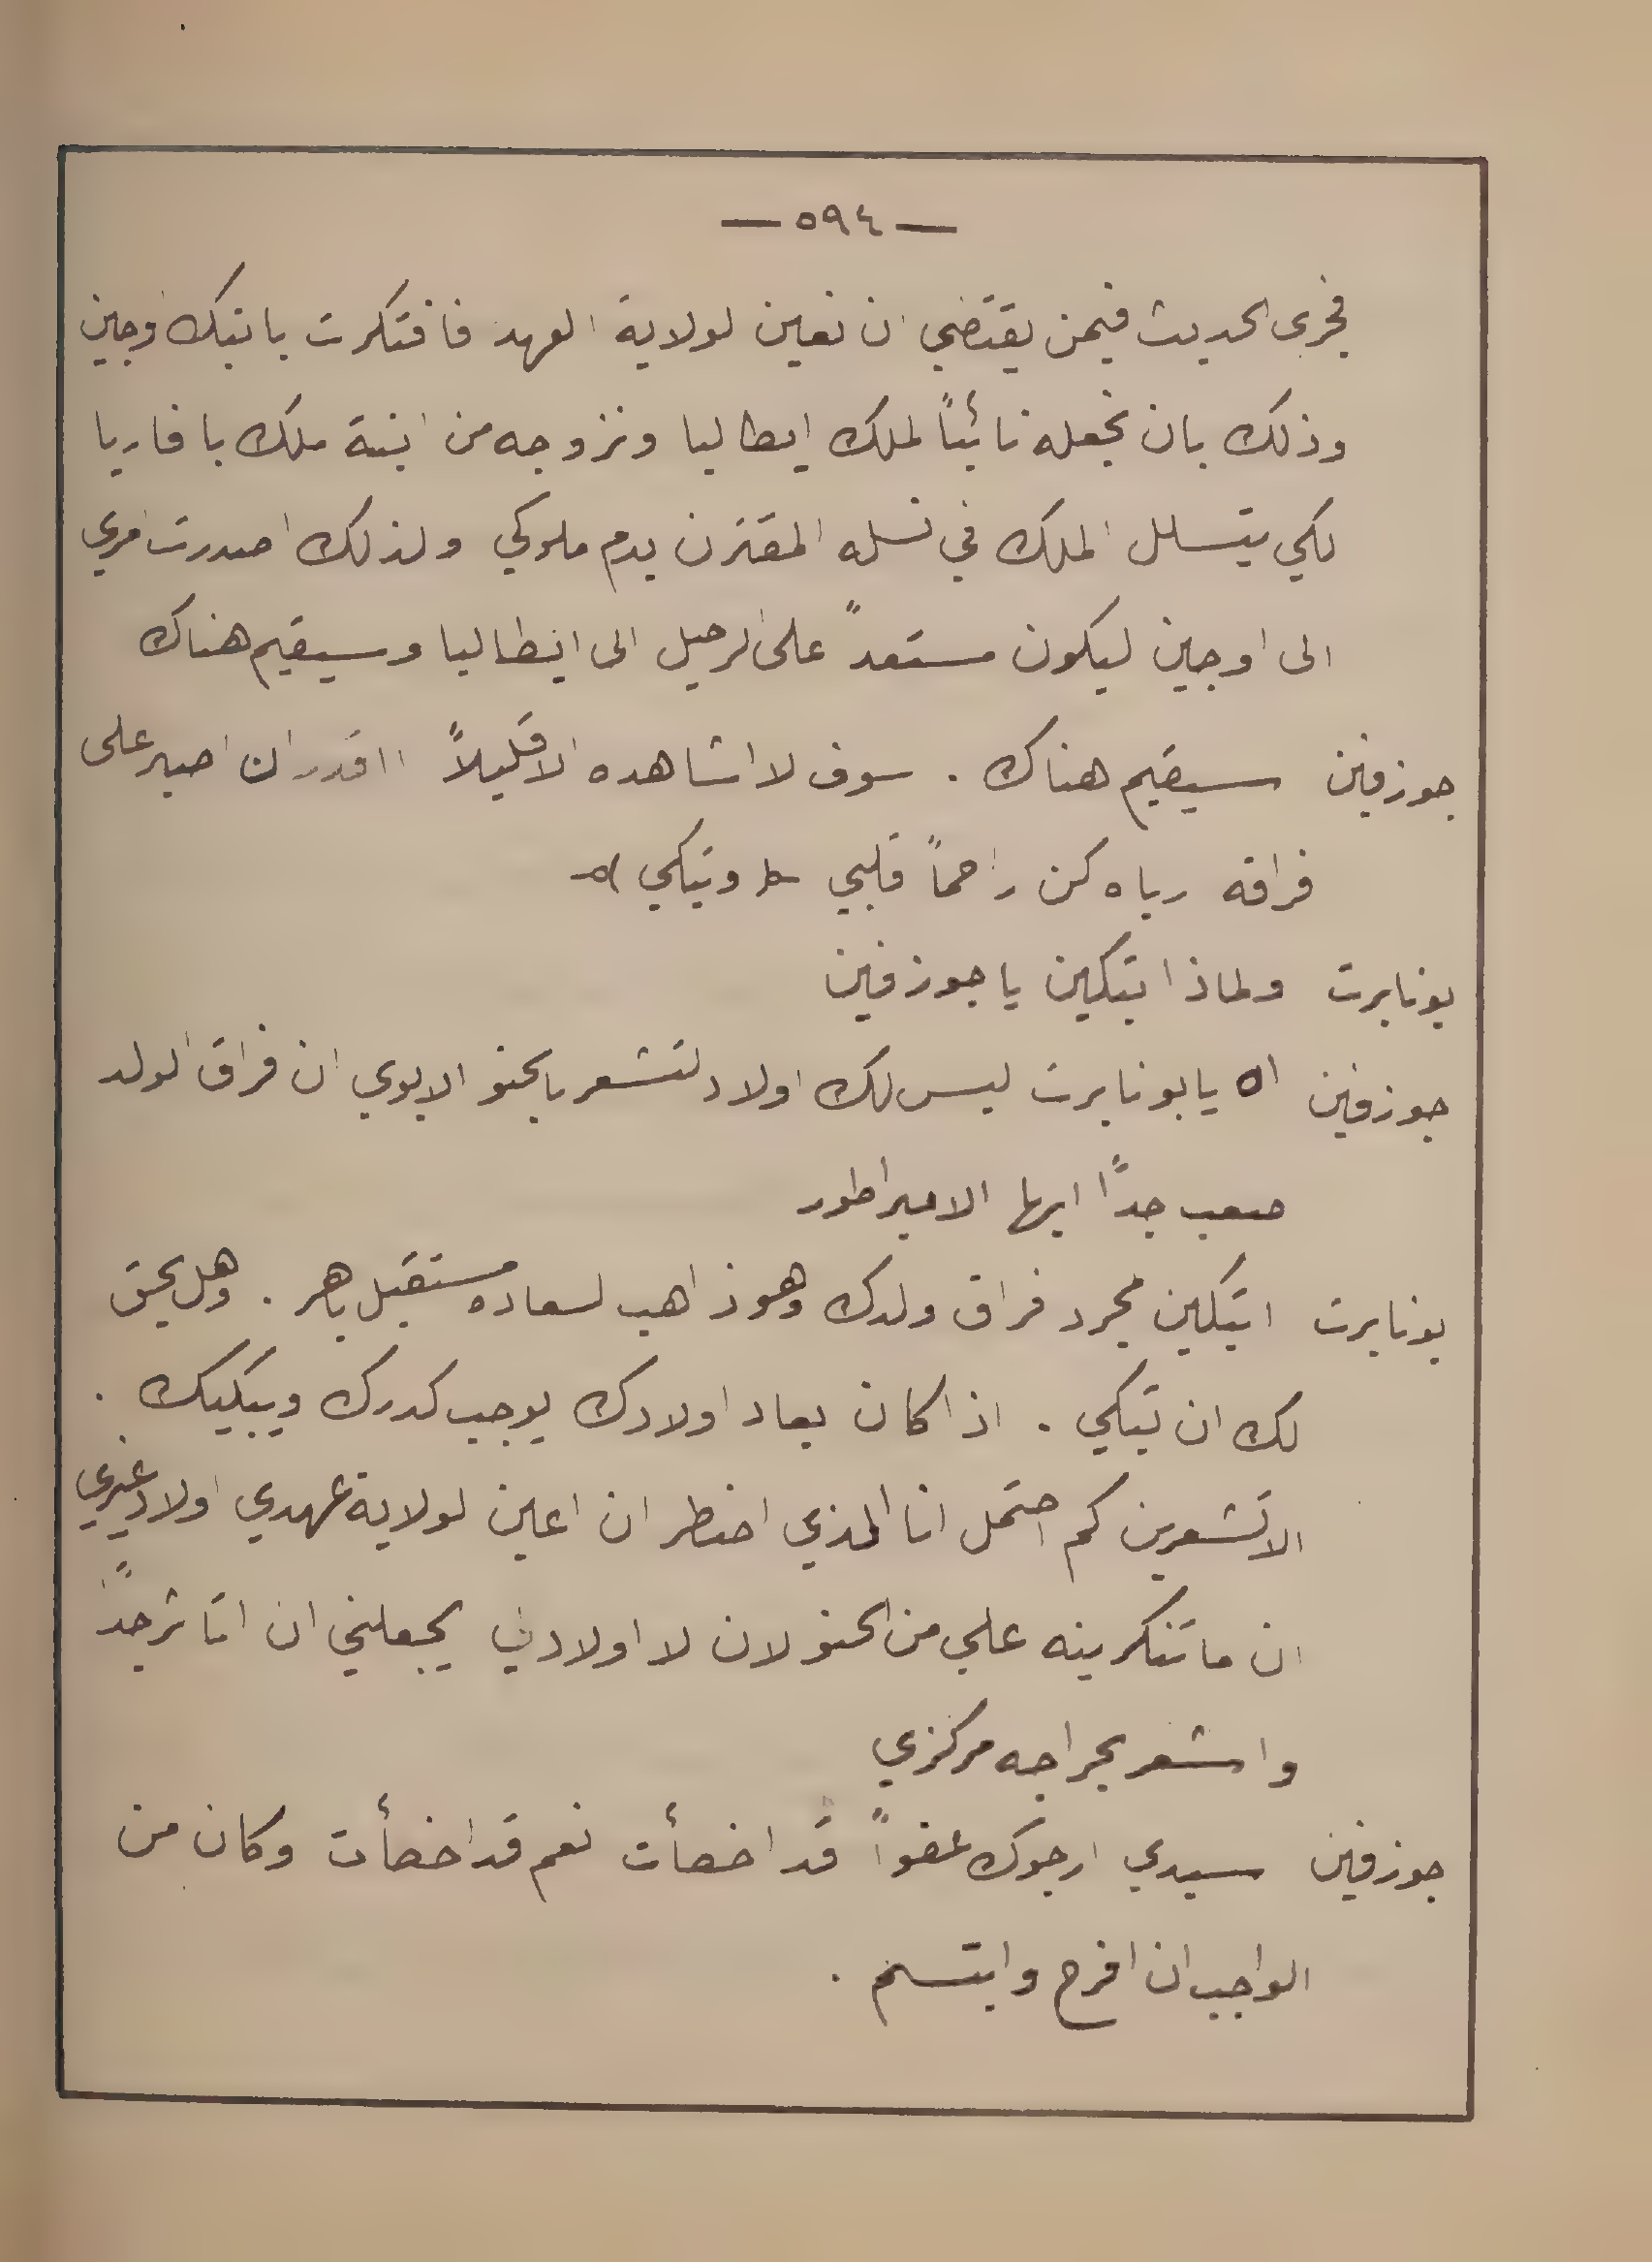 — ٥٩٤ —
فجرى الحديث فيمن يقتضي ان نعين لولاية العهد فافتكرت بابنك اوجين
وذلك بان نجعله نائباً لملك ايطاليا ونزوجه من ابنة ملك بافاريا
لكي يتسلل الملك في نسله المقترن بدم ملوكي ولذلك اصدرت امري
الى اوجين ليكون مستعداً على الرحيل الى ايطاليا وسيقيم هناك
جوزفين سيقيم هناك . سوف لا اشاهده الا قليلاً ااقدر ان اصبر على
فراقه رباه كن راحماً قلبي ( وتبكي )
بونابرت ولماذا تبكين يا جوزفين
جوزفين اه يا بونابرت ليس لك اولاد لتشعر بالحنو الابوي ان فراق الولد
صعب جداً ايها الامبراطور
بونابرت اتبكين لمجرد فراق ولدك وهو ذاهب لسعاده مستقبل باهر . وهل يحق
لك ان تبكي . اذا كان بعاد اولادك يوجب كدرك ويبكيك .
الا تشعرين كم احتمل انا الذي اضطر ان اعين لولاية عهدي اولاد غيري
ان ما تنكرينه علي من الحنو لان لا اولاد لي يجعلني ان اتاثر جداً
واشعر بحراجه مركزي
جوزفين سيدي ارجوك عفواً قد اخطأت نعم قد اخطأت وكان من
الواجب ان افرح وابتسم .